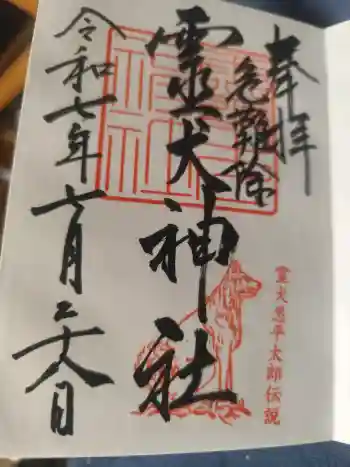 奉拝
危難除
靈犬神社
令和七年六月二十八日
霊犬悉平太郎伝説